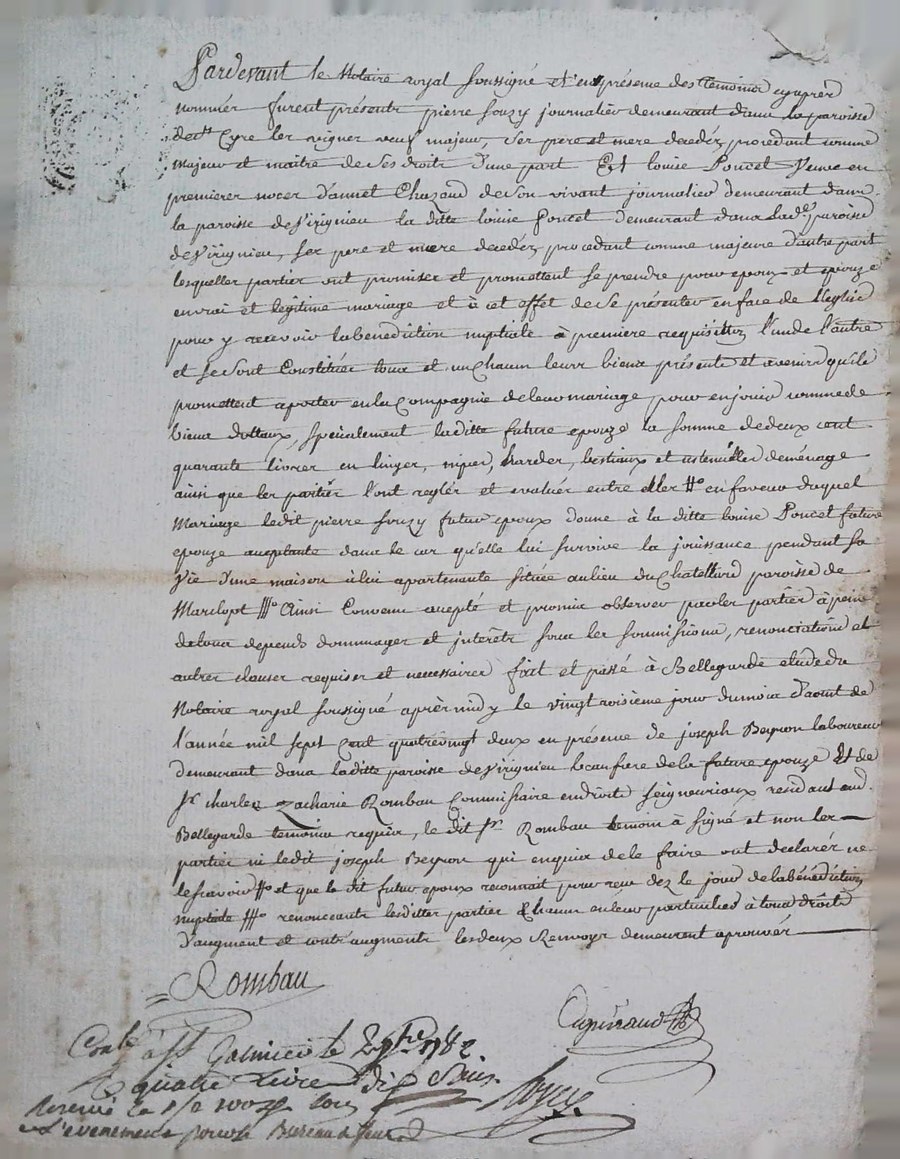 Pardevant le Notaire royal soussigné et en présence des temoins cyaprès
nommés furent présents pierre souzy journalier demeurant dans la paroisse
de st Cyre les vignes veuf majeur, ses pere et mere decedés procedant comme
majeur et maitre de ses droits d'une part Et louise Poncet Veuve en
premieres noces d'annet Chazaud de son vivant journalier demeurant dans
la paroise de Virignieu la ditte louise Poncet demeurant dans lade paroise
de Virignieu, ses pere et mere decedés procedant comme majeure d'autre part
lesquelles parties ont promises et promettent se prendre pour epoux et epouze
en vrai et legitime mariage et à cet effet de se présenter en face de l'eglise
pour y recevoir la benediction nuptiale à premiere requisition l'un de l'autre
et se sont Constitués tous et un Chacun leurs biens présents et avenirs qu'ils
promettent aporter en la Compagnie de leur mariage, pour en jouir comme de
biens dottaux, spécialement laditte future epouze la somme de deux cent
quarante livres en linges, nipes, hardes, bestiaux et ustenciles de ménage
ainsi que les parties l'ont reglés et evalués entre elles // en faveur duquel
Mariage ledit pierre souzy futur epoux donne à la ditte louise Poncet future
epouze aceptante dans le cas qu'elle lui survive la jouissance pendant sa
Vie d'une maison à lui apartenante située au lieu du Chatellard paroisse de
Marclopt // Ainsi Convenu acepté et promis observer par les parties à peine
de tous depends dommages et interêts sous les soumissions, renonciations et
autres clauses requises et necessaires fait et passé à Bellegarde etude du
Notaire royal soussigné après midy le vingt troisieme jour du mois d'aout de
l'année mil sept Cent quatre vingt deux en présence de joseph Beyron laboureur
demeurant dans laditte paroisse de Virignieu beaufrere de la future epouze Et de
Sr charles Zacharie Rombau Commissaire en droits seigneuriaux residant aud.
Bellegarde temoins requis, le dit Sr Rombau temoin à signé et non les
parties ni ledit joseph Beyron qui enquis de le faire ont declarés ne
le scavoir // et que le dit futur epoux reconnait pour reçu dez le jour de la bénédiction
nuptiale // renonceants lesdittes parties Chacun en leur particulier à tous droits
d'augment et contr'augments les deux Renvoys demeurent aprouvés
Rombau
Cont. à st Galmier le 2 7bre 1782
quatre livres dix sous
Reservé le
l'evenement pour le Bureau de